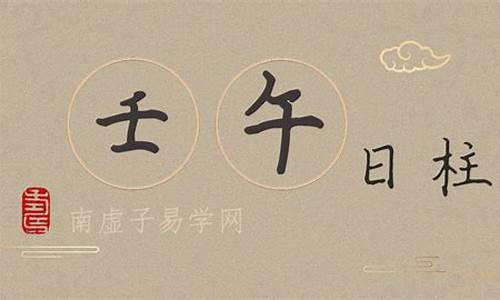 壬午日柱
南虚子易学网